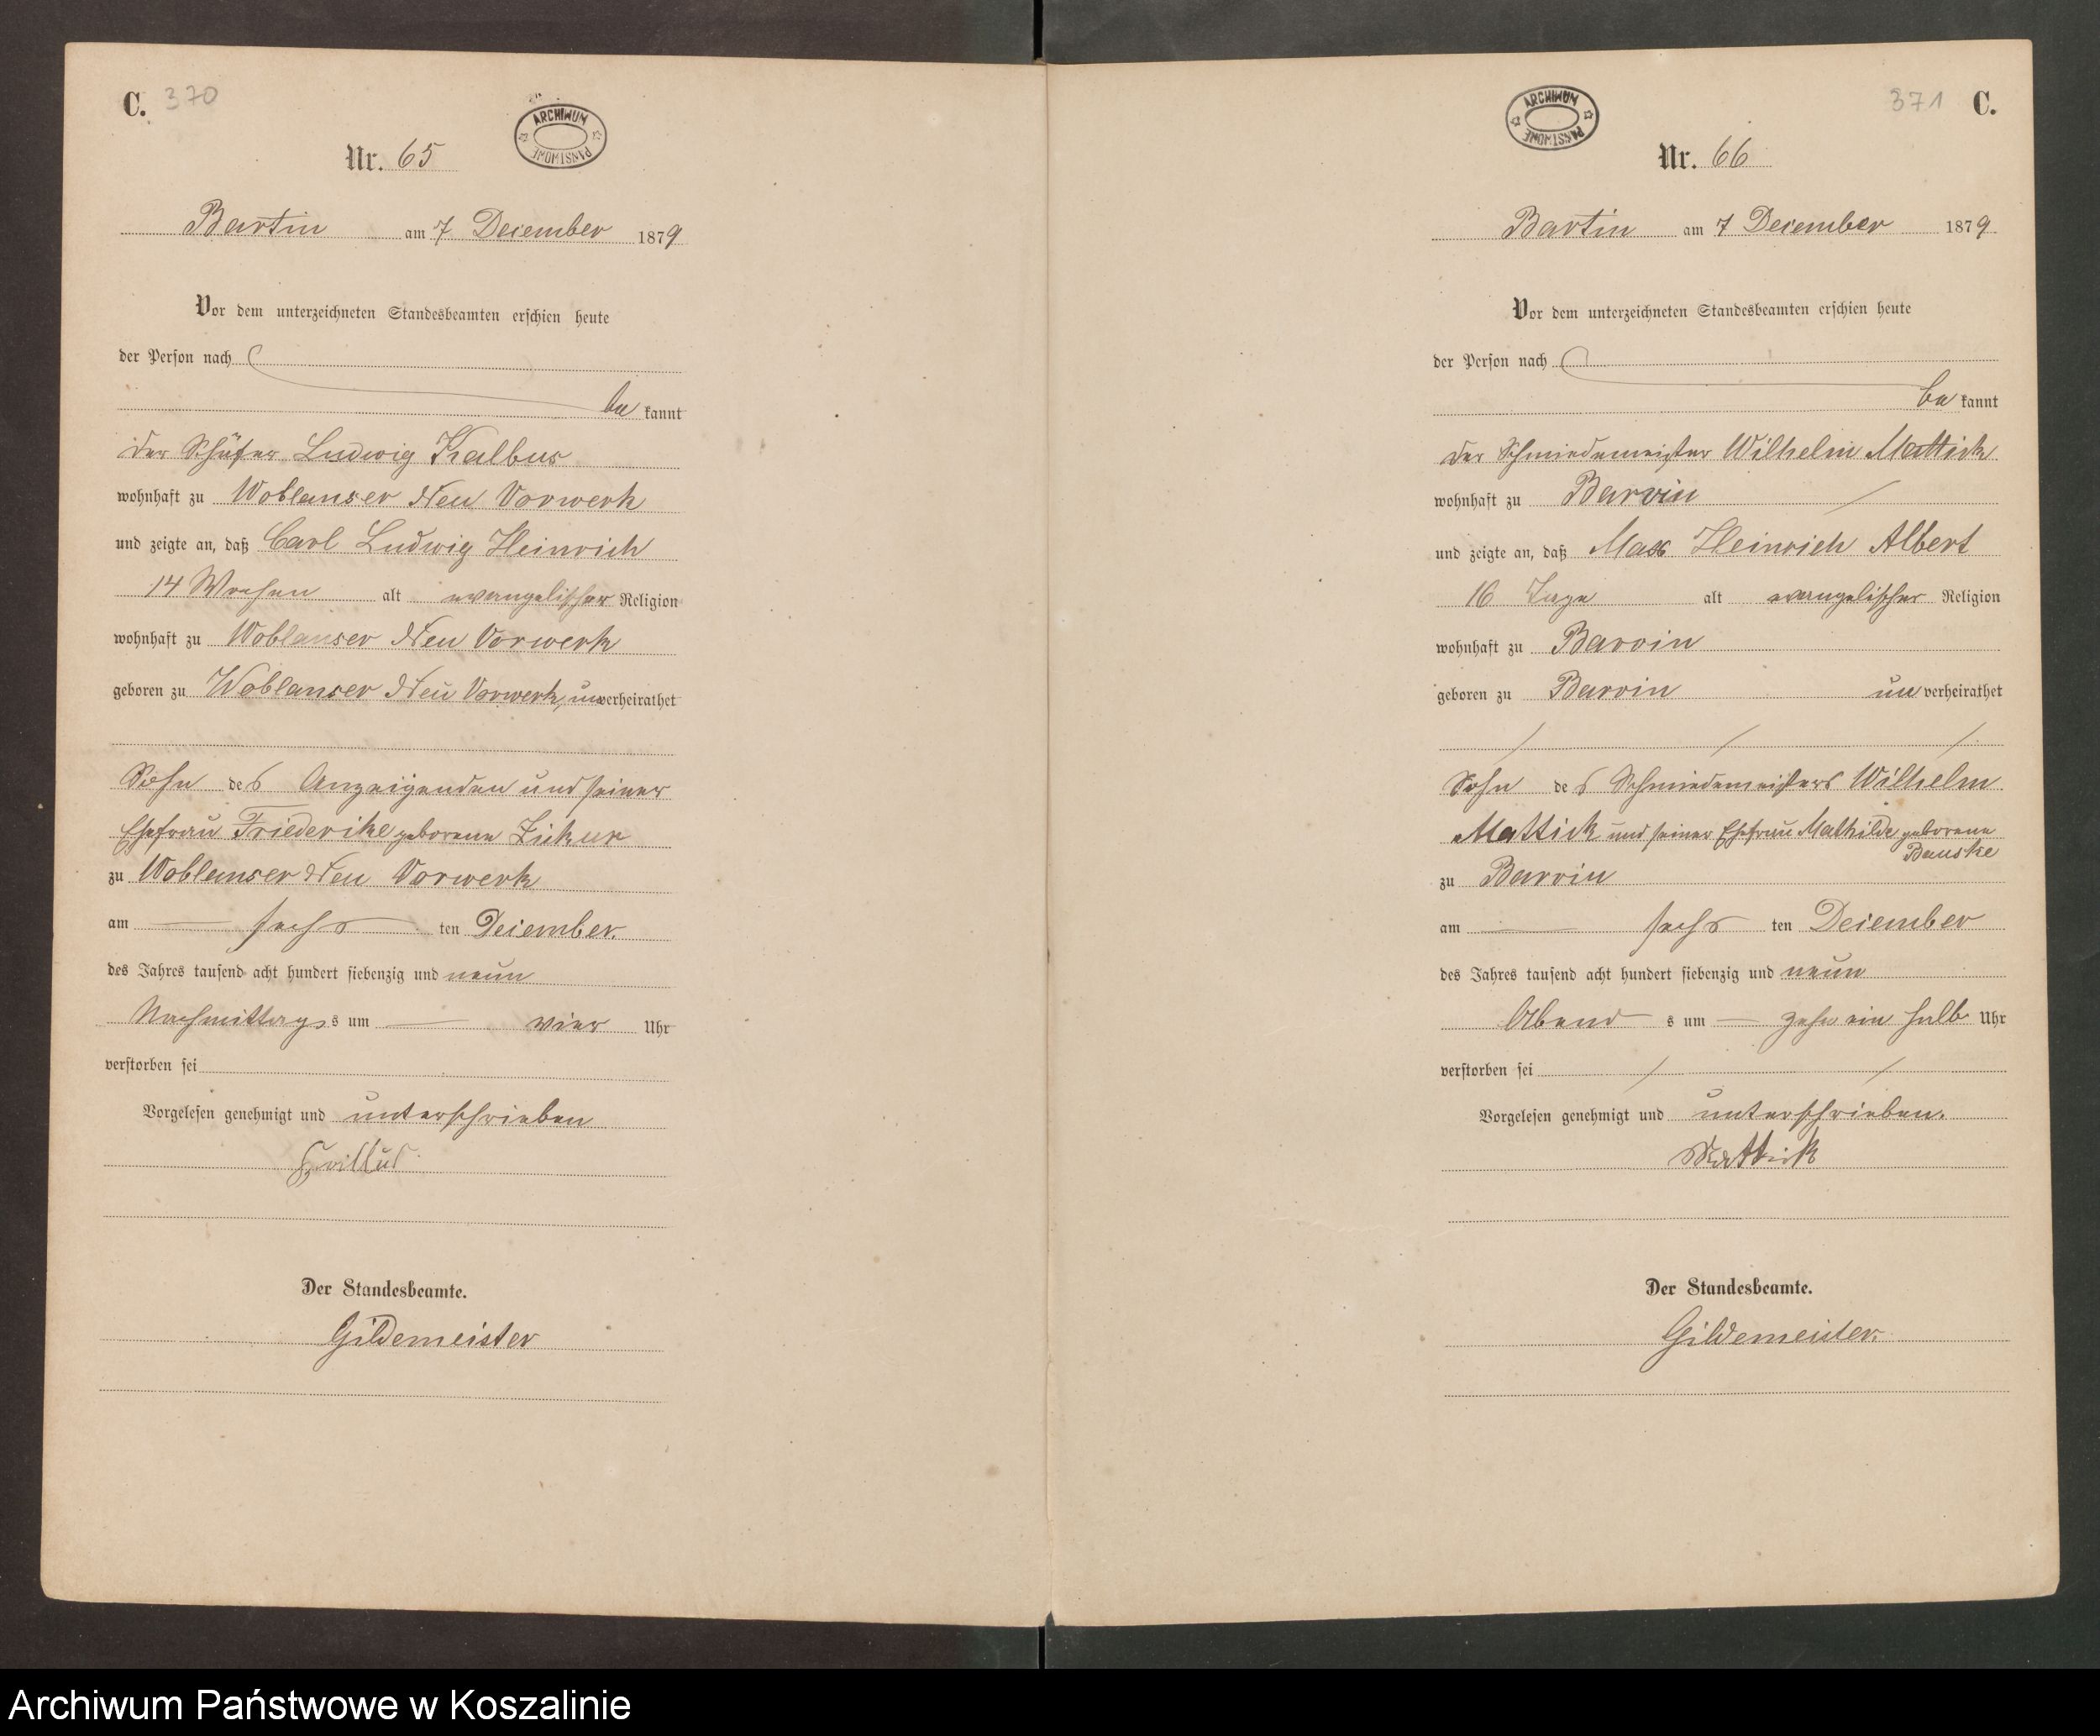 C. 370
ARCHIWUM PAŃSTWOWE
Nr. 65
Bartin am 7 December 1879
Vor dem unterzeichneten Standesbeamten erschien heute
der Person nach
be kannt
der Schäfer Ludwig Kalbus
wohnhaft zu Woblanser Neu Vorwerk
und zeigte an, daß Carl Ludwig Heinrich
14 Wochen alt evangelischer Religion
wohnhaft zu Woblanser Neu Vorwerk
geboren zu Woblanser Neu Vorwerk, unverheirathet
Sohn des Anzeigenden und seiner
Ehefrau Friederike geborene
zu Woblanser Neu Vorwerk
am sechs ten December.
des Jahres tausend acht hundert siebenzig und neun
Nachmittags um vier Uhr
verstorben sei
Vorgelesen genehmigt und unterschrieben
Der Standesbeamte.
Gildemeister
371 C.
ARCHIWUM PAŃSTWOWE
Nr. 66
Bartin am 7 December 1879
Vor dem unterzeichneten Standesbeamten erschien heute
der Person nach
be kannt
der Schmiedemeister Wilhelm Mattick
wohnhaft zu Barvin
und zeigte an, daß Max Heinrich Albert
16 Tage alt evangelischer Religion
wohnhaft zu Barvin
geboren zu Barvin un verheirathet
Sohn des Schmiedemeisters Wilhelm
Mattick und seiner Ehefrau Mathilde geborene
Bauske
zu Barvin
am sechs ten December
des Jahres tausend acht hundert siebenzig und neun
Abend s um zehn ein halb Uhr
verstorben sei
Vorgelesen genehmigt und unterschrieben.
Mattick
Der Standesbeamte.
Gildemeister.
Archiwum Państwowe w Koszalinie